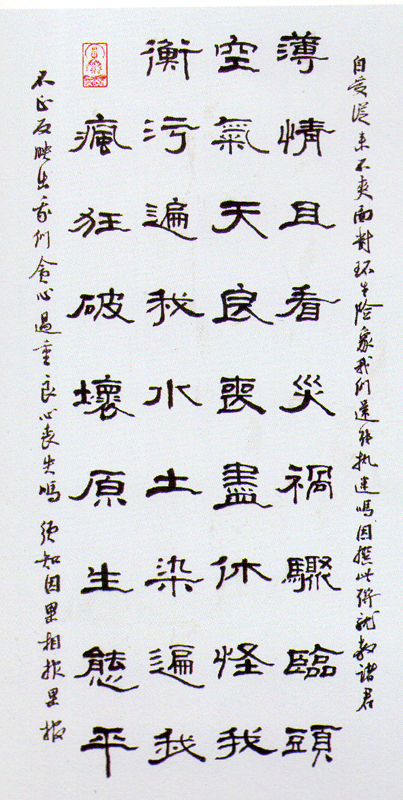 不正反映出我们貪心過重良心丧失嗎 须知因果相报果报
瘋狂破壞原生態平
衡污遍我水土染遍我
空氣天良喪盡休怪我
薄情且看災禍驟臨頭
自受從来不爽面對环生险象我们還能执迷嗎因撰此聯就教諸君